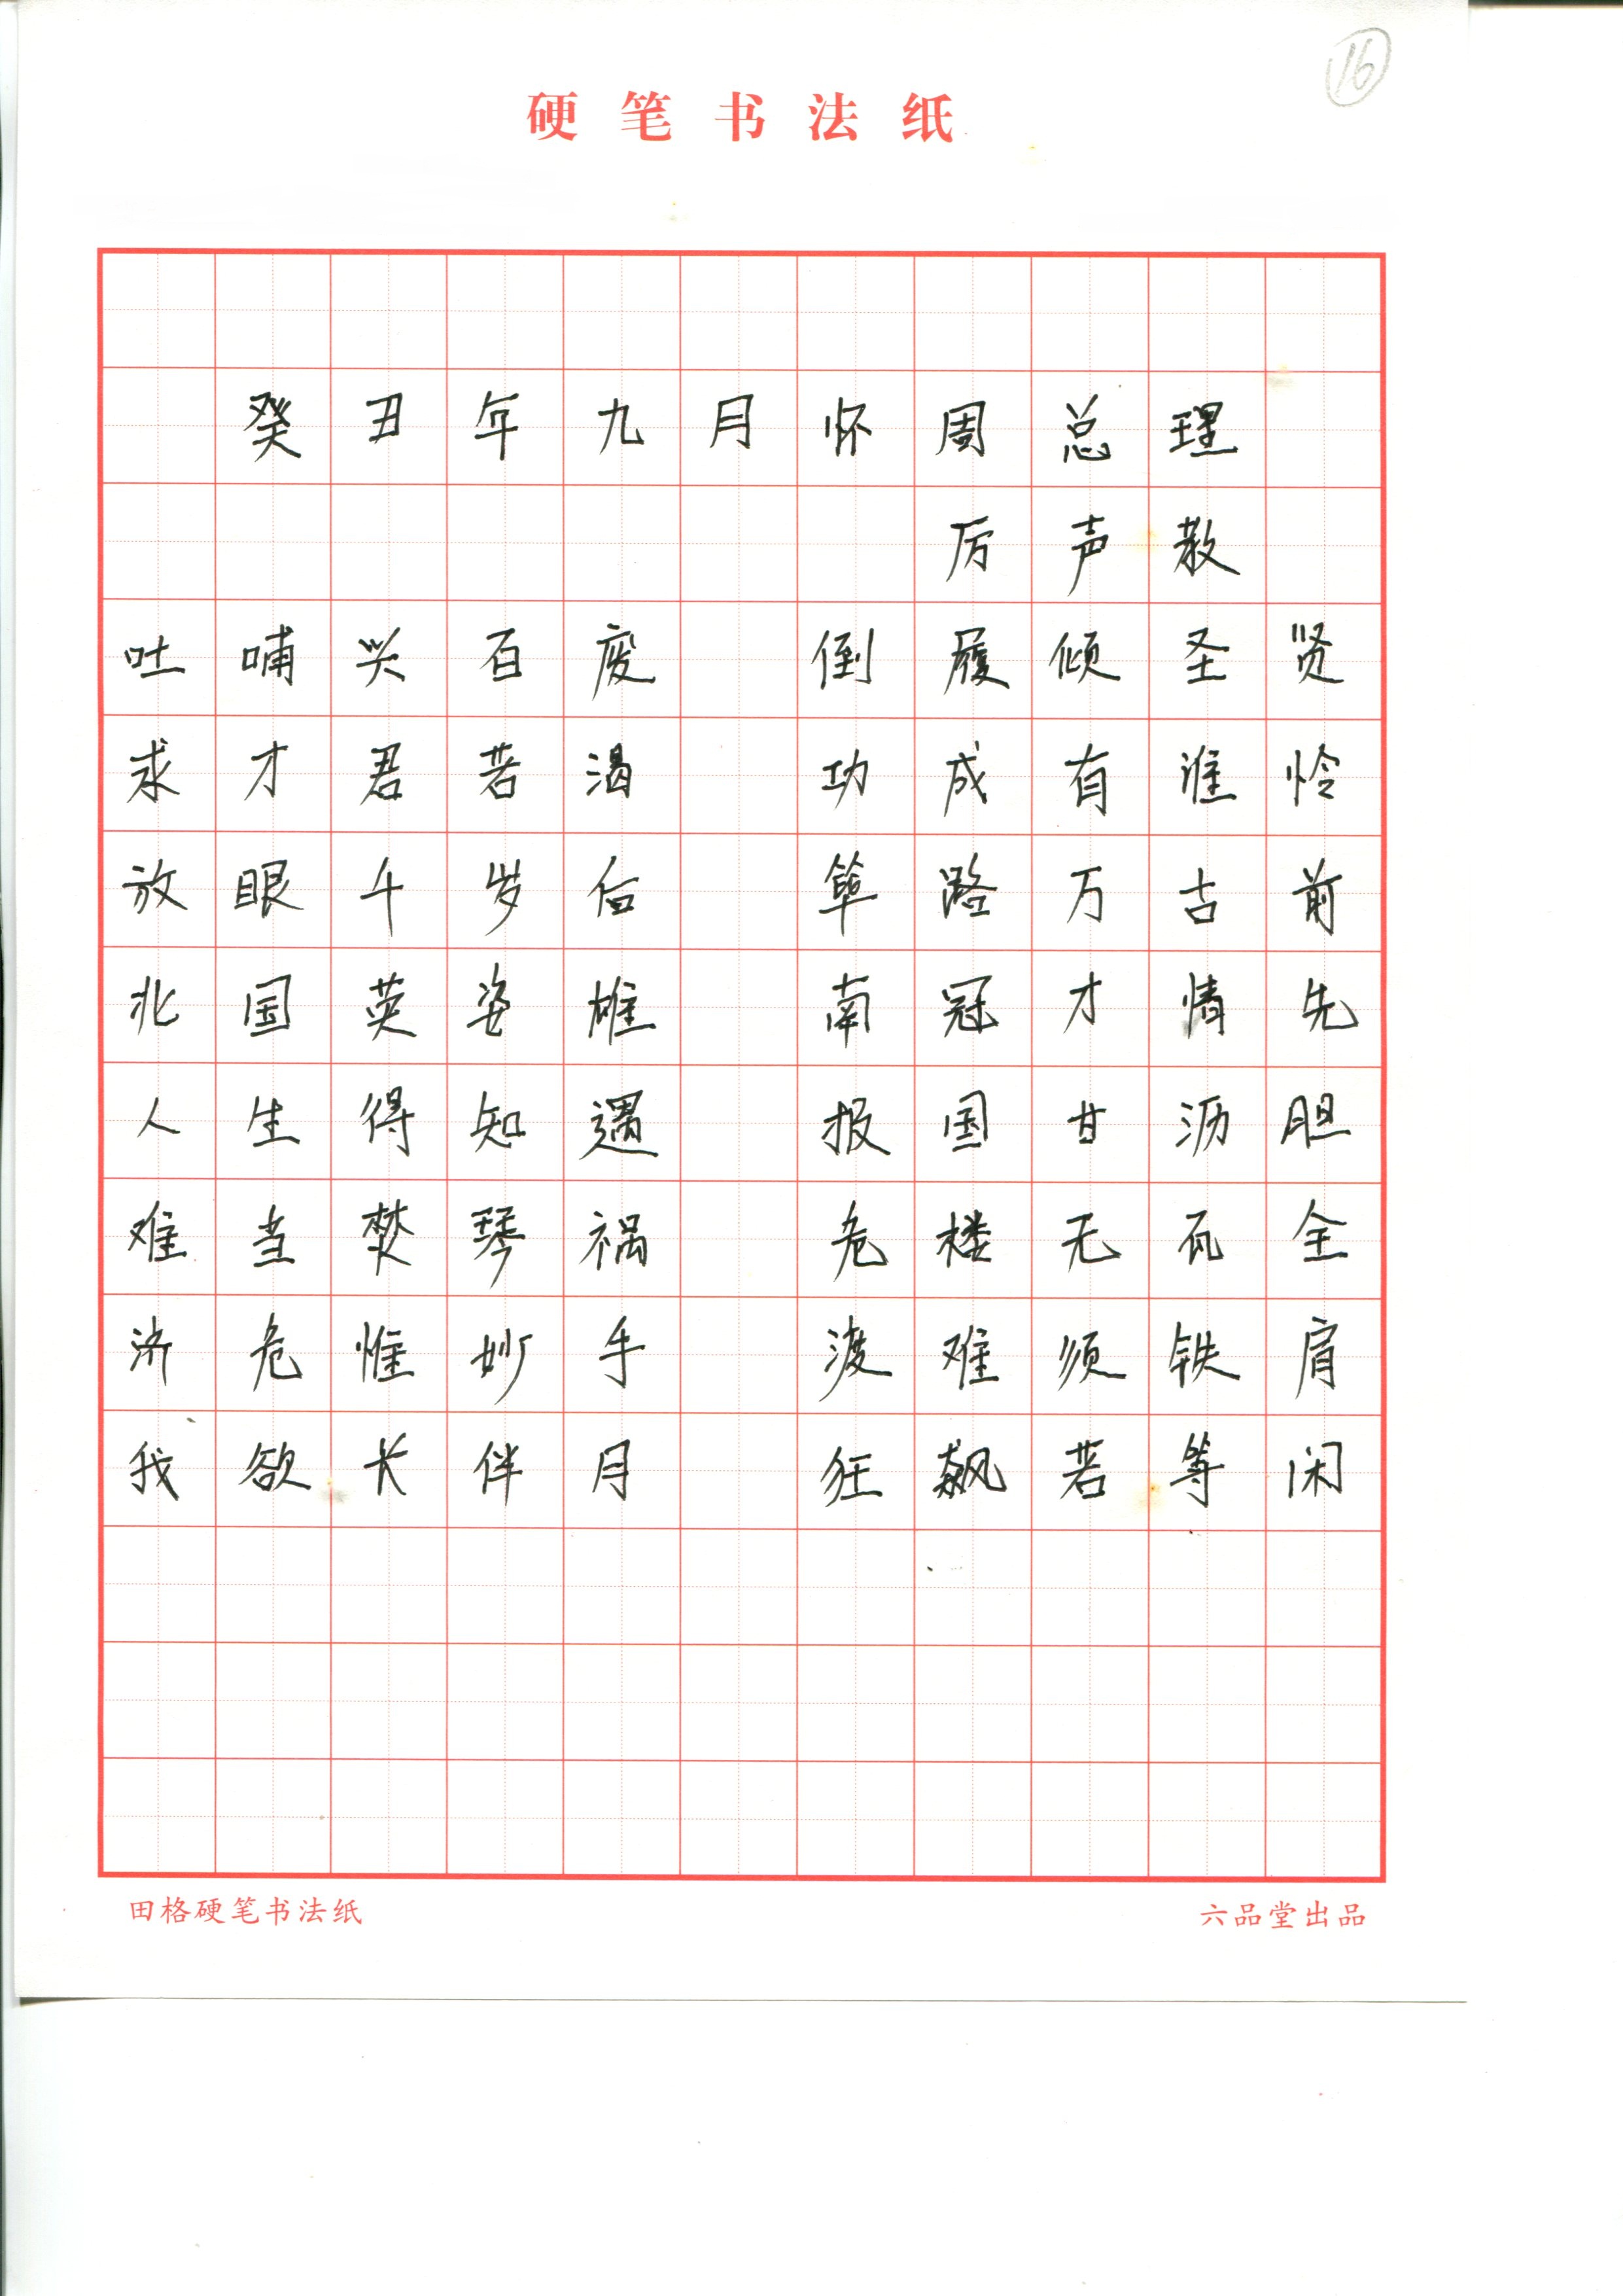 16
硬笔书法纸
癸丑年九月怀周总理
厉声教
吐哺兴百废 倒履倾圣贤
求才君若渴 功成有谁怜
放眼千岁后 筚路万古前
北国英姿雄 南冠才情先
人生得知遇 报国甘沥胆
难当焚琴祸 危楼无瓦全
济危惟妙手 渡难须铁肩
我欲长伴月 狂飙若等闲
田格硬笔书法纸 六品堂出品